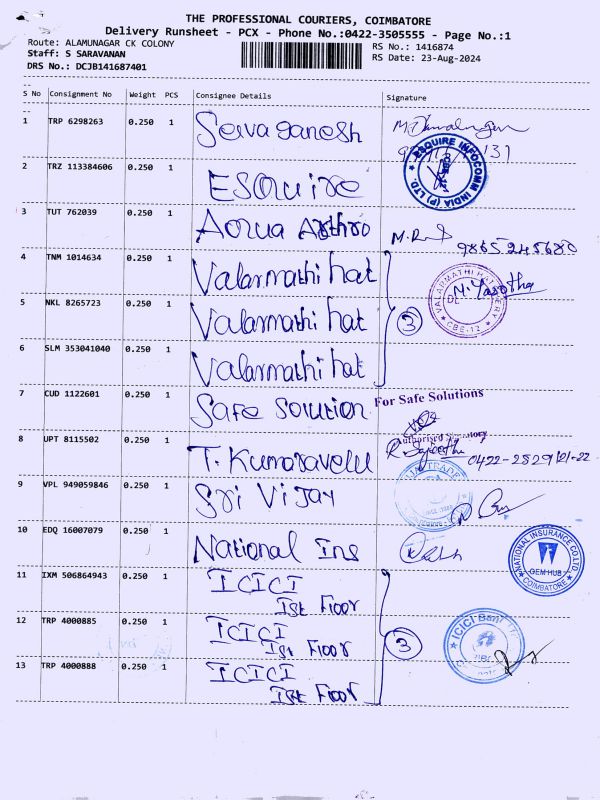 THE PROFESSIONAL COURIERS, COIMBATORE
Delivery Runsheet - PCX - Phone No.:0422-3505555 - Page No.:1
Route: ALAMUNAGAR CK COLONY
Staff: S SARAVANAN
DRS No.: DCJB141687401
RS No.: 1416874
RS Date: 23-Aug-2024
S No Consignment No Weight PCS Consignee Details Signature
1 TRP 6298263 0.250 1 Selva ganesh
2 TRZ 113384606 0.250 1 ESquire
ESQUIRE INFOCOMM INDIA (P) LTD.
3 TUT 762039 0.250 1 Acqua Arthro
9865245680
4 TNM 1014634 0.250 1 Valarmathi hat
VALARMATHI HATCHERY
CBE-12
5 NKL 8265723 0.250 1 Valarmathi hat 3
6 SLM 353041040 0.250 1 Valarmathi hat
7 CUD 1122601 0.250 1 Safe Solution
For Safe Solutions
Authorised Signatory
8 UPT 8115502 0.250 1 T. Kumaravelu
9 VPL 949059846 0.250 1 Sri Vijay
10 EDQ 16007079 0.250 1 National Ins
NATIONAL INSURANCE CO.LTD
GEM HUB
COIMBATORE
11 IXM 506864943 0.250 1 ICICI
Ist Floor
12 TRP 4000885 0.250 1 ICICI 3
Ist Floor
ICICI Bank
13 TRP 4000888 0.250 1 ICICI
Ist Floor